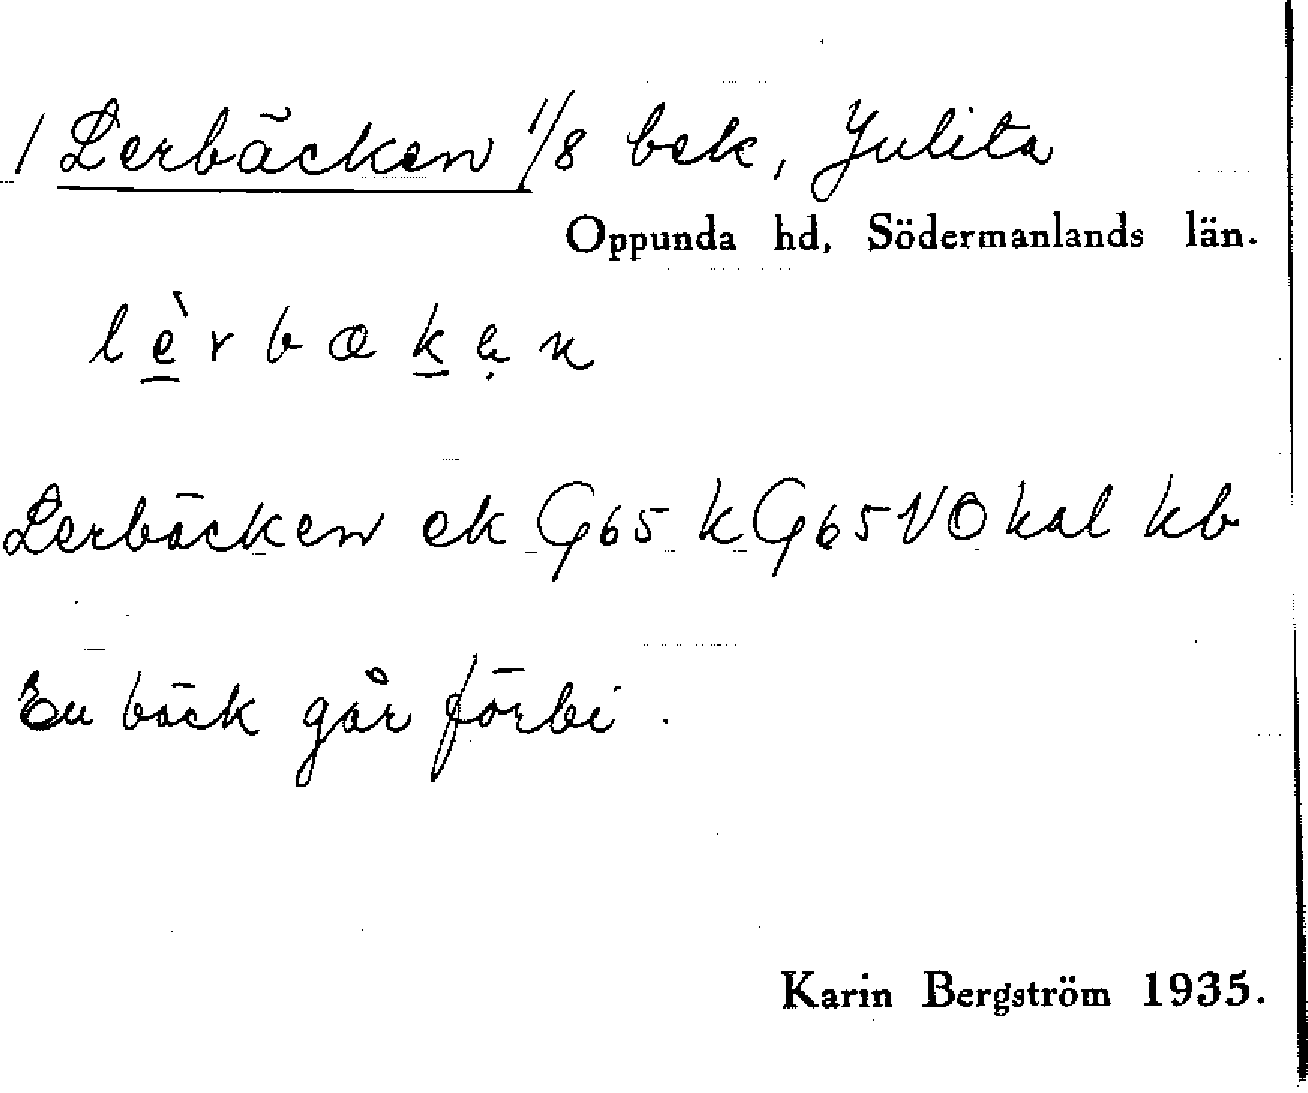 / Lerbäcken 1/8 bek, Julita
Oppunda hd, Södermanlands län.
lè̱rbæḵẹn
Lerbäcken ek G65 k G65 VO hal kb
En bäck går förbi.
Karin Bergström 1935.